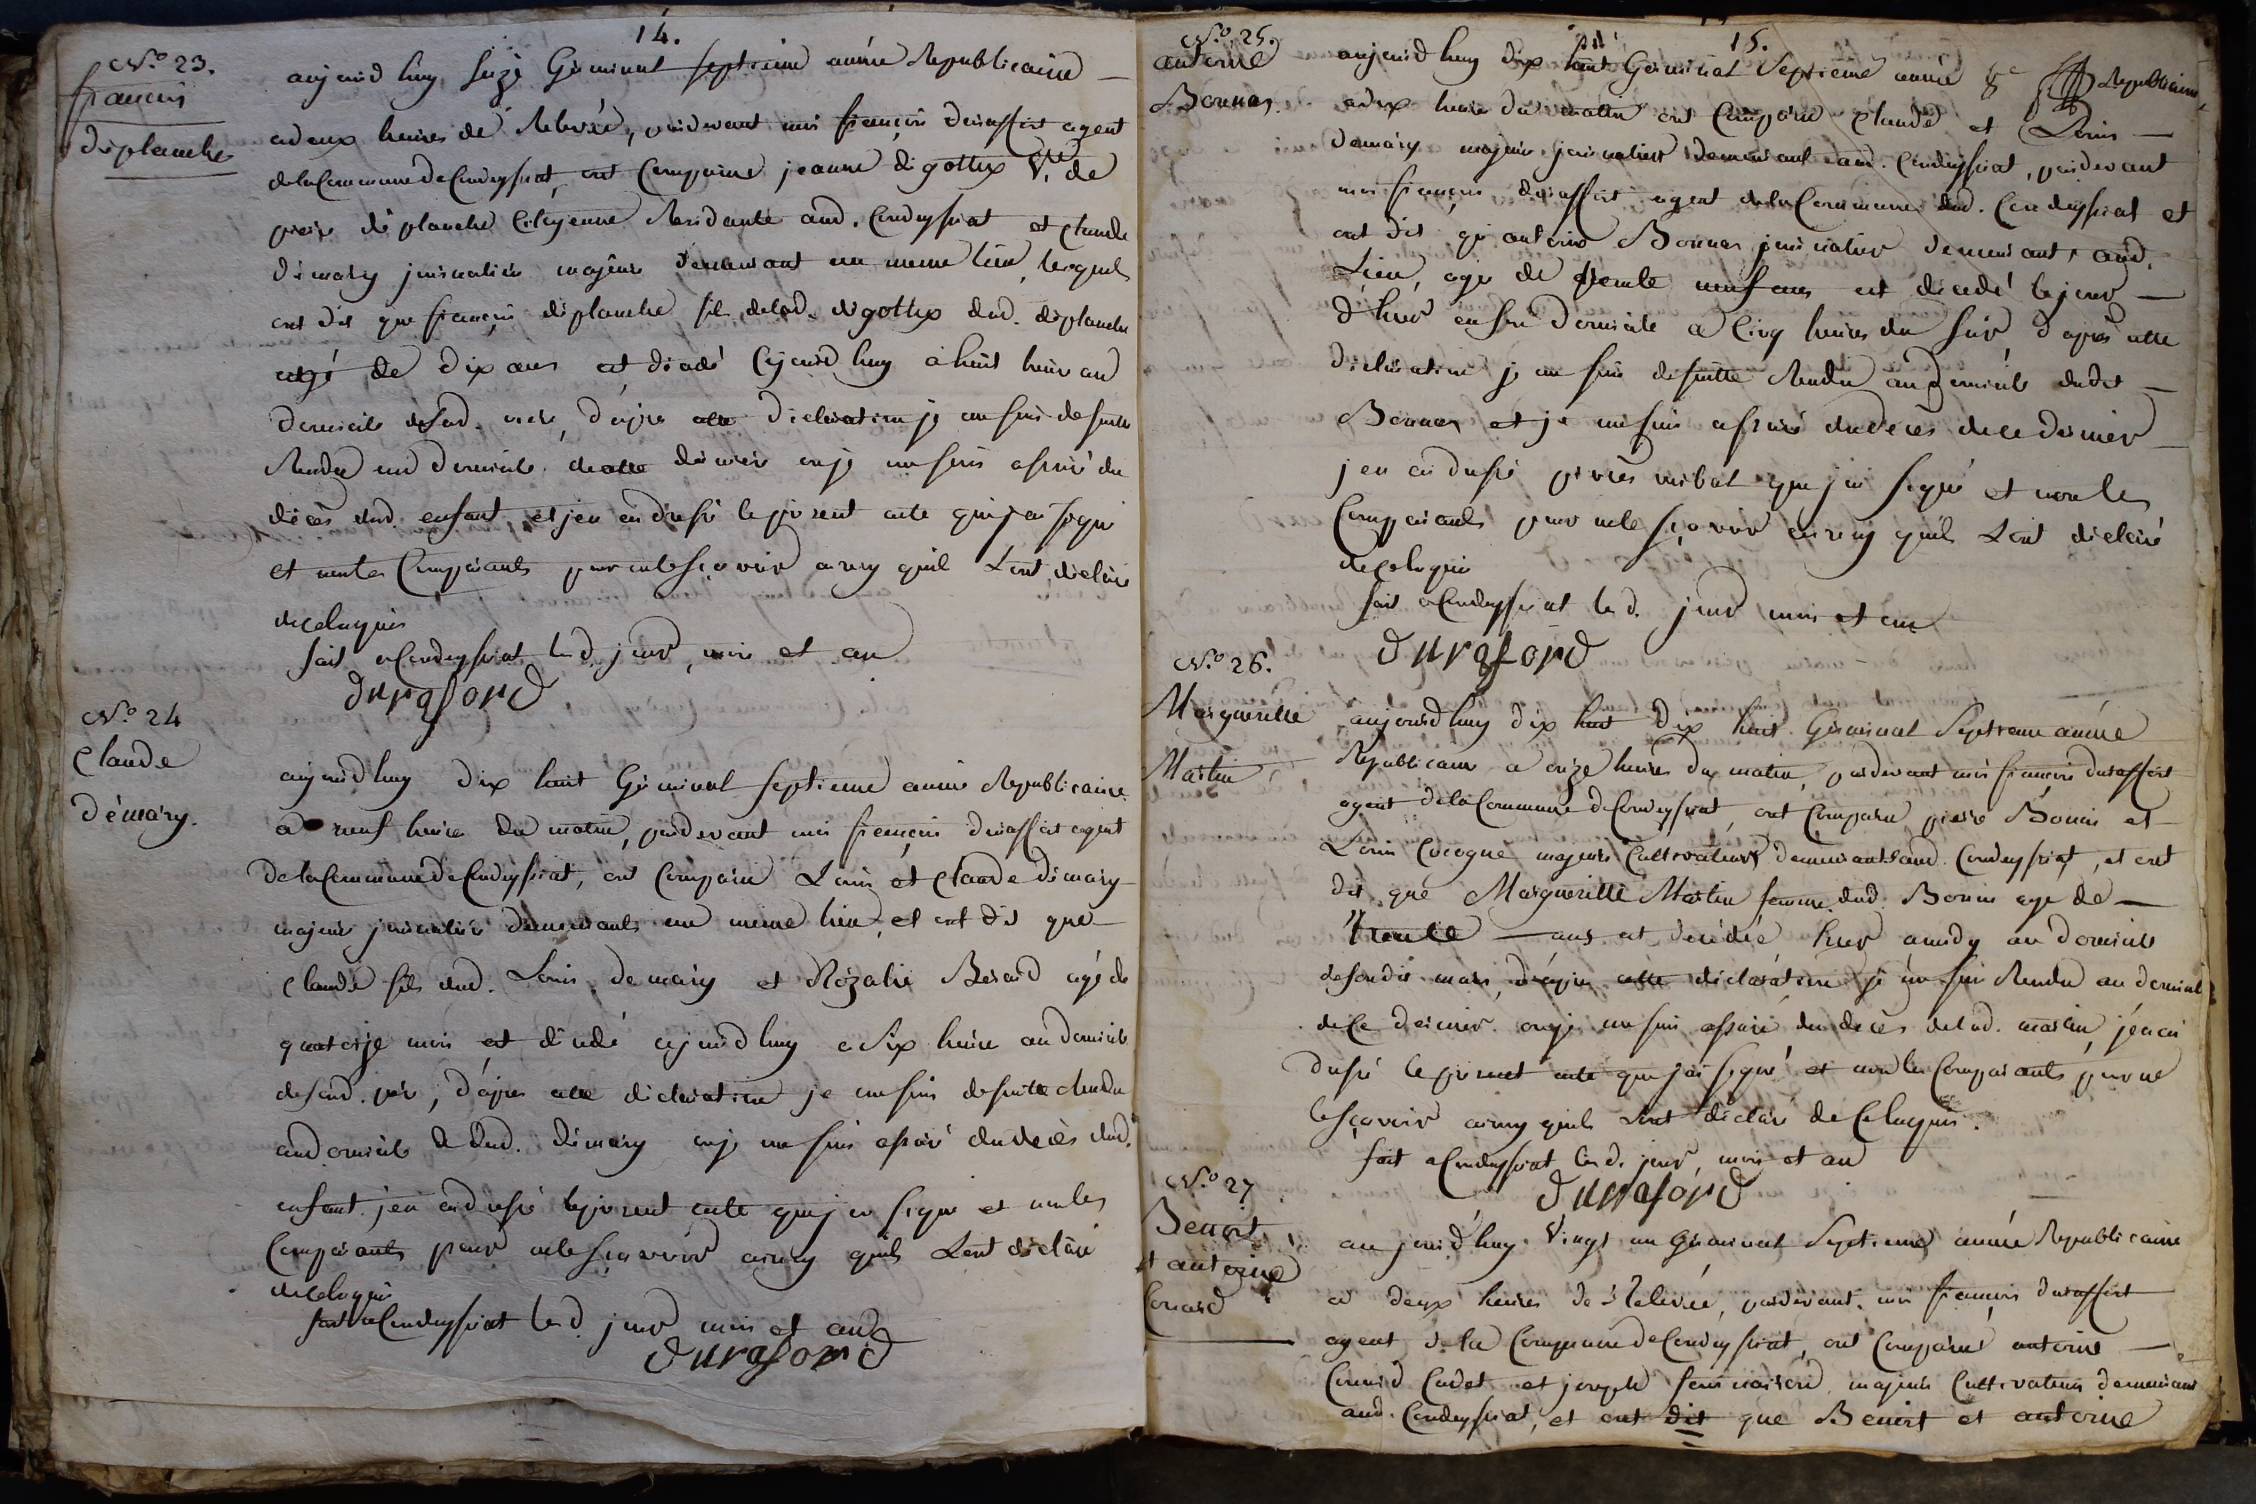 14.
N.o 23.
françois
déplanche
aujourd huy seize Germinal septieme année Republicaine
a deux heures de Relevée, pardevant moi françois duraffort agent
de la Commune de Condeyssiat, ont Comparu jeanne digottex V.e de
pierre déplanche Citoyenne Residante aud. Condeyssiat et Claude
démary journalier majeur demeurant au meme lieu, lesquels
ont dit que françois déplanche fils de lad. digottex dud. déplanche
agé de dix ans est décédé cejourd huy a huit heure au
domicile de sad. mere, d'apres cette declaration je me suis de suitte
Rendu au domicile de cette derniere ou je me suis assuré du
décès dud. enfant, et j en ai dressé le present acte que j ai signé
et non les Comparants pour ne le sçavoir ainsy quils l ont déclaré
de ce Requis
fait a Condeyssiat led. jour, mois et an
duraford
N.o 24
Claude
démary.
aujourd huy dix huit Germinal septieme année Republicaine
a neuf heures du matin, pardevant moi françois duraffort agent
de la Commune de Condeyssiat, ont Comparu Louis et Claude démary
majeurs journaliers demeurants au meme lieu, et ont dit que
Claude fils dud. Louis démary et Rozalie Berard agé de
quatorze mois est décédé cejourd huy a six heure au domicile
de sond. pere, d'apres cette declaration je me suis de suitte Rendu
au domicile dud. démary ou je me suis assuré du décès dud.
enfant j en ai dressé le present acte que j ai signé et non les
Comparants pour ne le sçavoir ainsy quils l ont déclaré
de ce Requis
fait a Condeyssiat led. jour mois et an
duraford
15.
N.o 25.
antoine
Bonnas.
aujourd huy dix huit Germinal Septieme année Republicaine
a dix heures du matin ont Comparu Claude et Louis
démary majeurs journaliers demeurant aud. Condeyssiat, pardevant
moi françois duraffort agent de la Commune dud. Condeyssiat et
ont dit qu antoine Bonnas journalier demeurant aud.
Lieu, agé de trente neuf ans est décédé le jour
d'hier en son domicile a Cinq heures du soir d'après cette
déclaration je me suis de suitte Rendu au domicile dudit
Bonnas et je me suis assuré du décès de ce dernier
j en ai dressé procès verbal que j ai signé et non les
Comparants pour ne le sçavoir ainsy quils l ont déclaré
de ce Requis
fait a Condeyssiat led. jour mois et an
duraford
N.o 26.
Marguerille
Martin
aujourd huy dix huit dix huit Germinal Septieme année
Republicaine a onze heures du matin, pardevant moi françois duraffort
agent de la Commune de Condeyssiat, ont Comparu pierre Bonin et
Louis Cocogne majeurs Cultivateurs demeurants aud. Condeyssiat, et ont
dit que Marguerille Martin femme dud. Bonin agé de
trente ans est décédée hier a midy au domicile
de sondit mari, d'apres cette déclaration je me suis Rendu au domicile
de ce dernier ou je me suis assuré du décès de lad. martin, j en ai
dressé le present acte que j ai signé et non les Comparants pour ne
le sçavoir ainsy quils l ont déclaré de ce Requis.
fait a Condeyssiat led. jour, mois et an
duraford
N.o 27
Benoit
et antoine
Conard
aujourd'huy Vingt un Germinal Septieme année Republicaine
a deux heures de Relevée, pardevant moi françois duraffort
agent de la Commune de Condeyssiat, ont Comparu antoine
Conard Cadet et joseph majeurs Cultivateurs demeurant
aud. Condeyssiat, et ont dit que Benoit et antoine